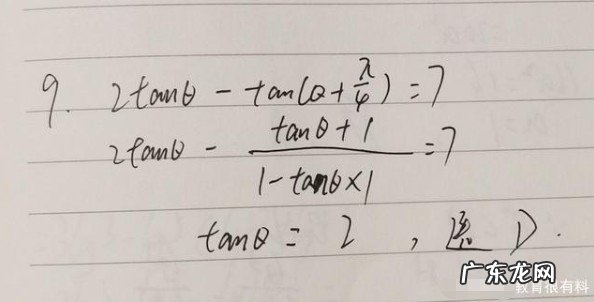 9. 2tanθ - tan(θ + π/4) = 7
2tanθ - (tanθ + 1)/(1 - tanθ×1) = 7
tanθ = 2 , 选 D.
广东龙网
教育很有料